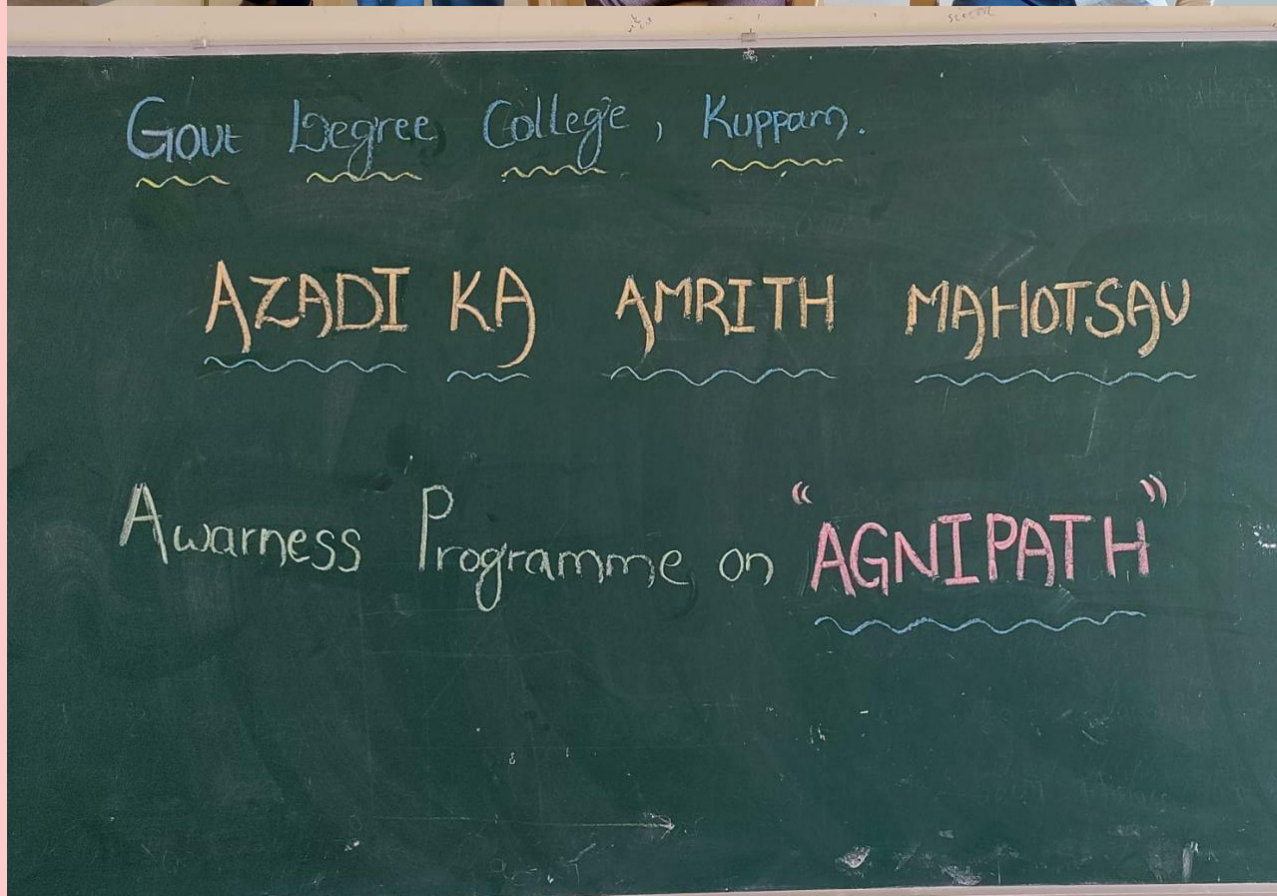 Govt Degree College, Kuppam.
AZADI KA AMRITH MAHOTSAV
Awarness Programme on "AGNIPATH"